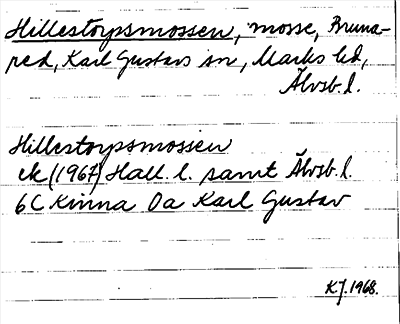 Hillestorpsmossen, mosse, Bruna-
red, Karl Gustavs sn, Marks hd,
Älvsb. l.
Hillestorpsmossen
ek (1967) Hall. l. samt Älvsb. l.
6C Kinna 0a Karl Gustav
KJ. 1968.